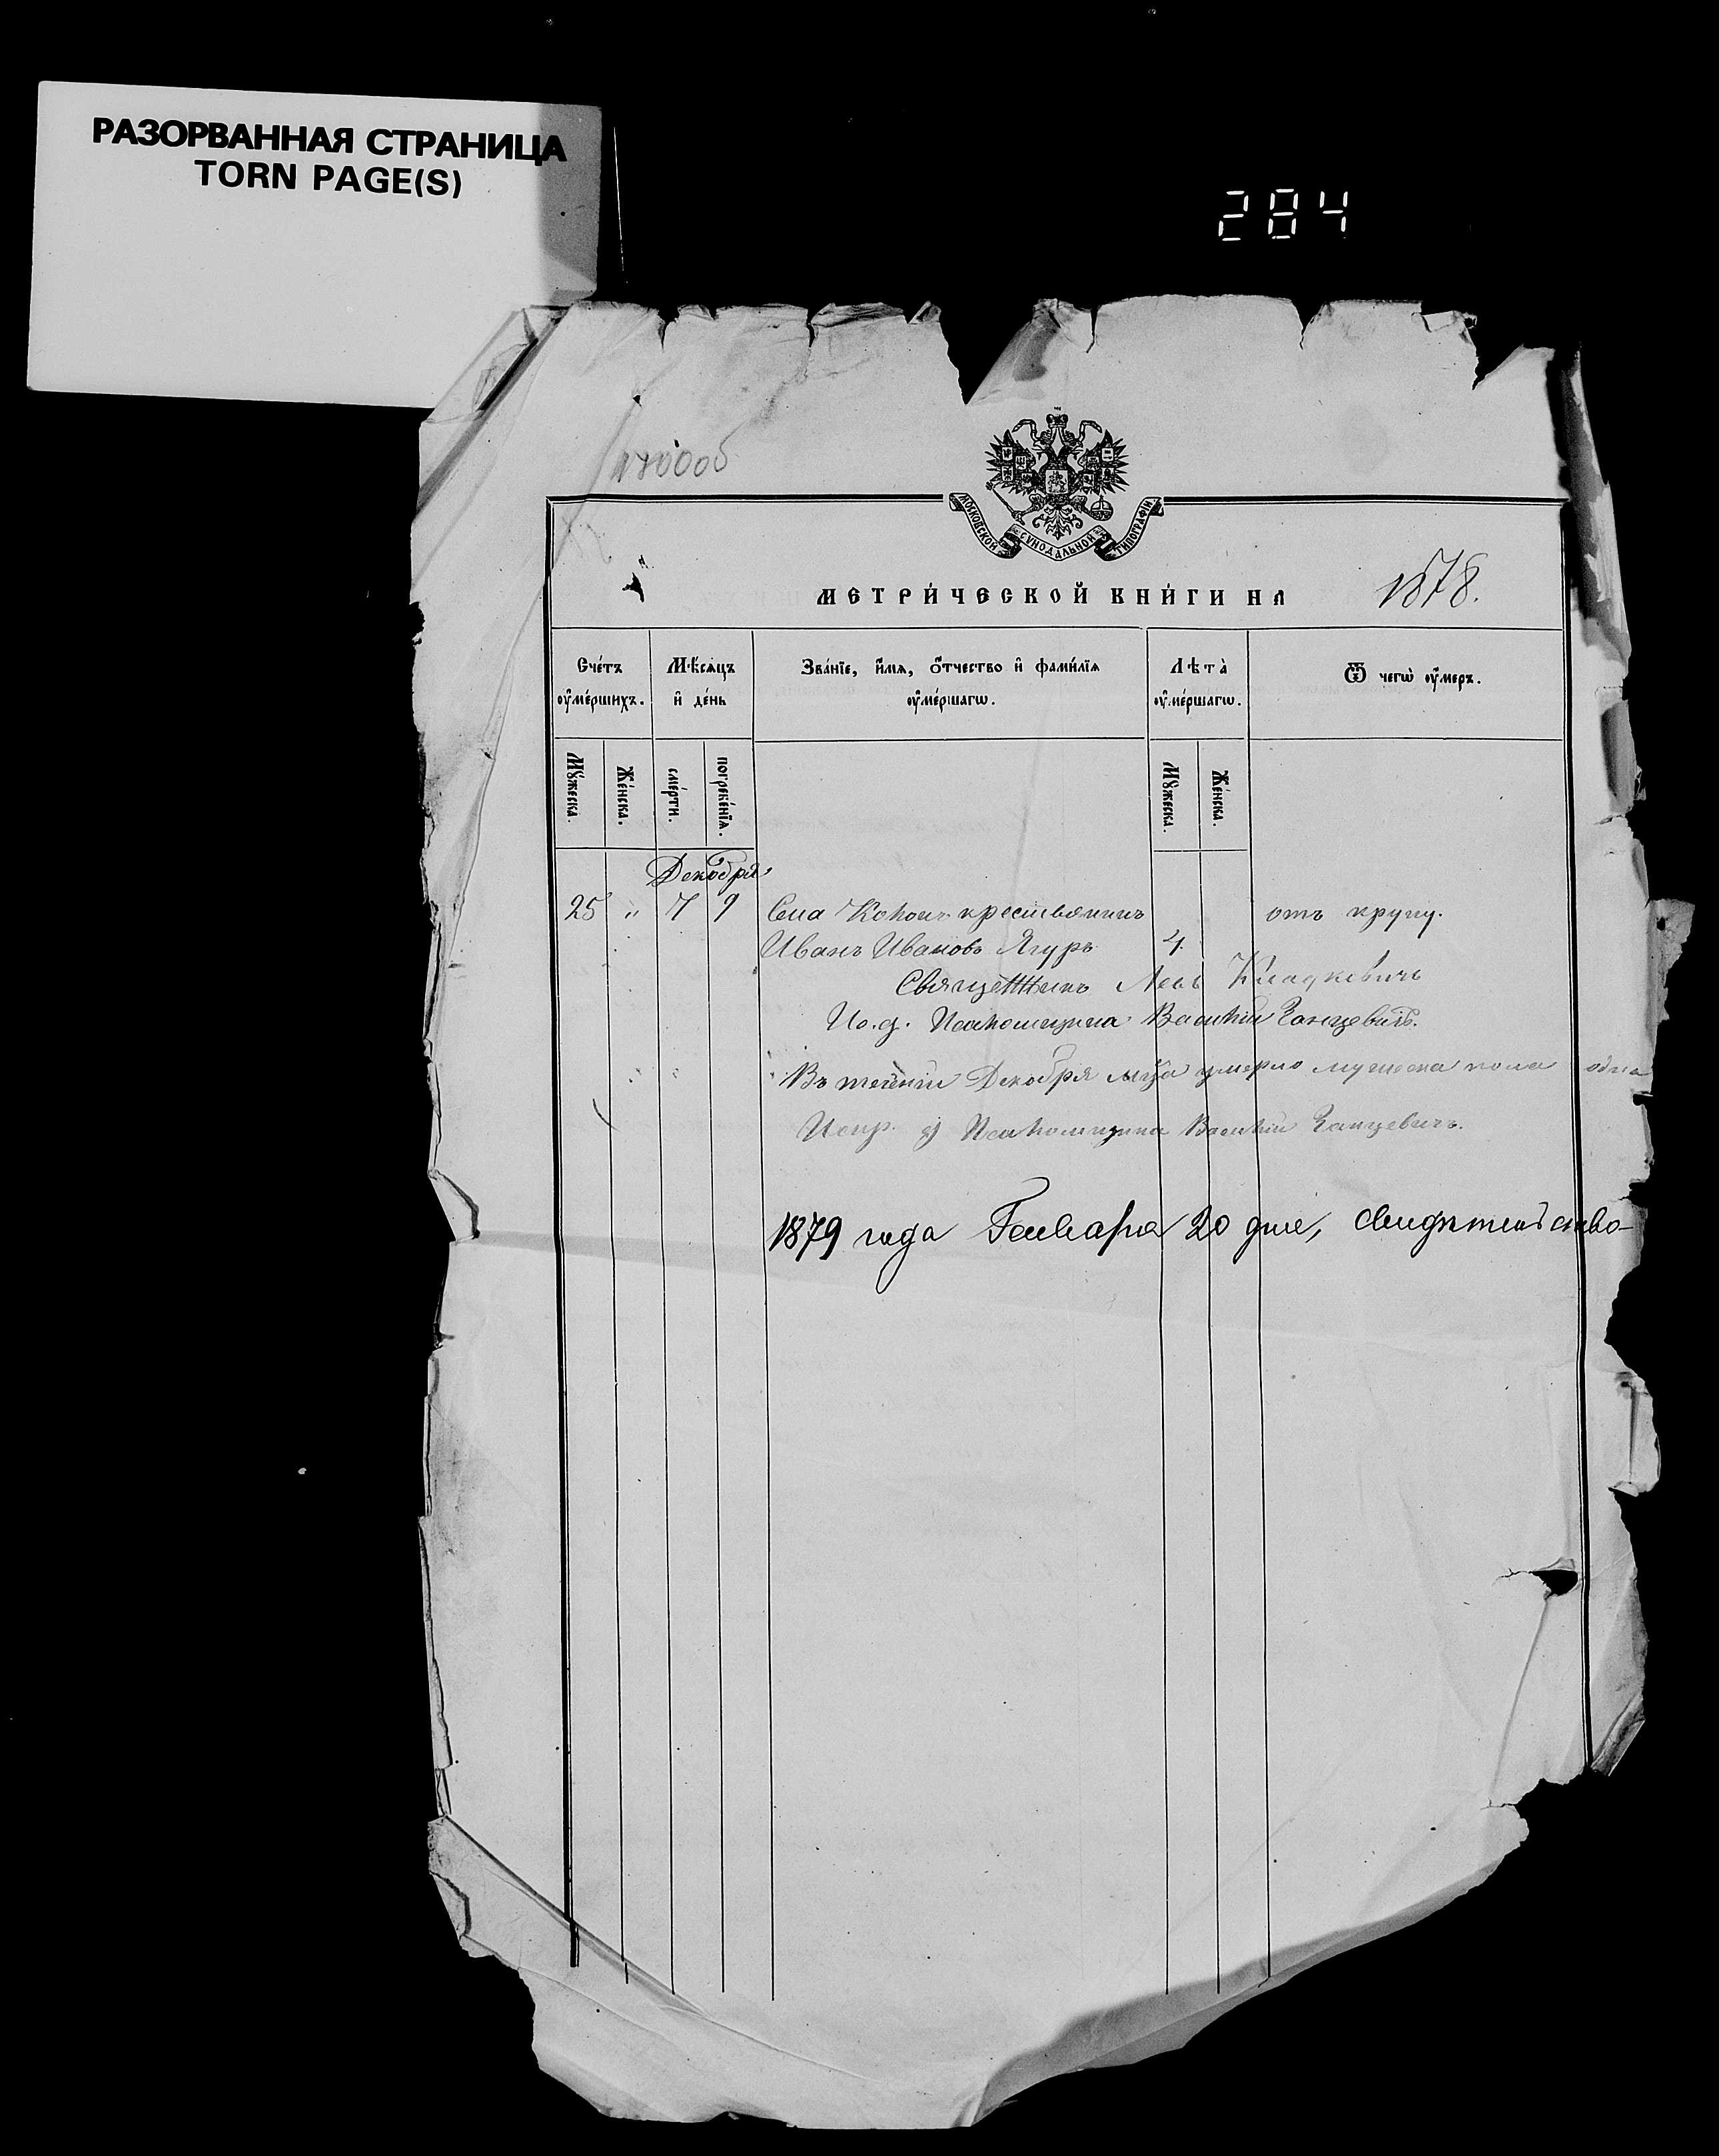 РАЗОРВАННАЯ СТРАНИЦА
TORN PAGE(S)
284
МОСКОВСКОЙ СѴНОДАЛЬНОЙ ТИПОГРАФІИ
МЕТРИ́ЧЕСКОЙ КНИ́ГИ НА 1878.
Сче́тъ ᲂу҆ме́ршихъ.
Мѣ́сѧцъ и҆ де́нь
Зва́нїе, и҆́мѧ, ѻ҆́тчество и҆ фами́лїѧ ᲂу҆ме́ршагѡ.
Лѣта̀ ᲂу҆ме́ршагѡ.
Ѿ чегѡ̀ ᲂу҆́меръ.
Мꙋ́жеска.
Же́нска.
сме́рти.
погребе́нїѧ.
Мꙋ́жеска.
Же́нска.
Декабря
25 " 7 9 Села крестьянинъ отъ крупу.
Иванъ Ивановъ Ягуръ 4.
Священникъ Левъ
И. д. Псаломщика Василій Ганцевичъ.
Въ теченіи Декабря мца умерло мужеска пола одна
Испр. д) Псаломщика Василій Ганцевичъ.
1879 года Генваря 20 дня, свидѣтельство-